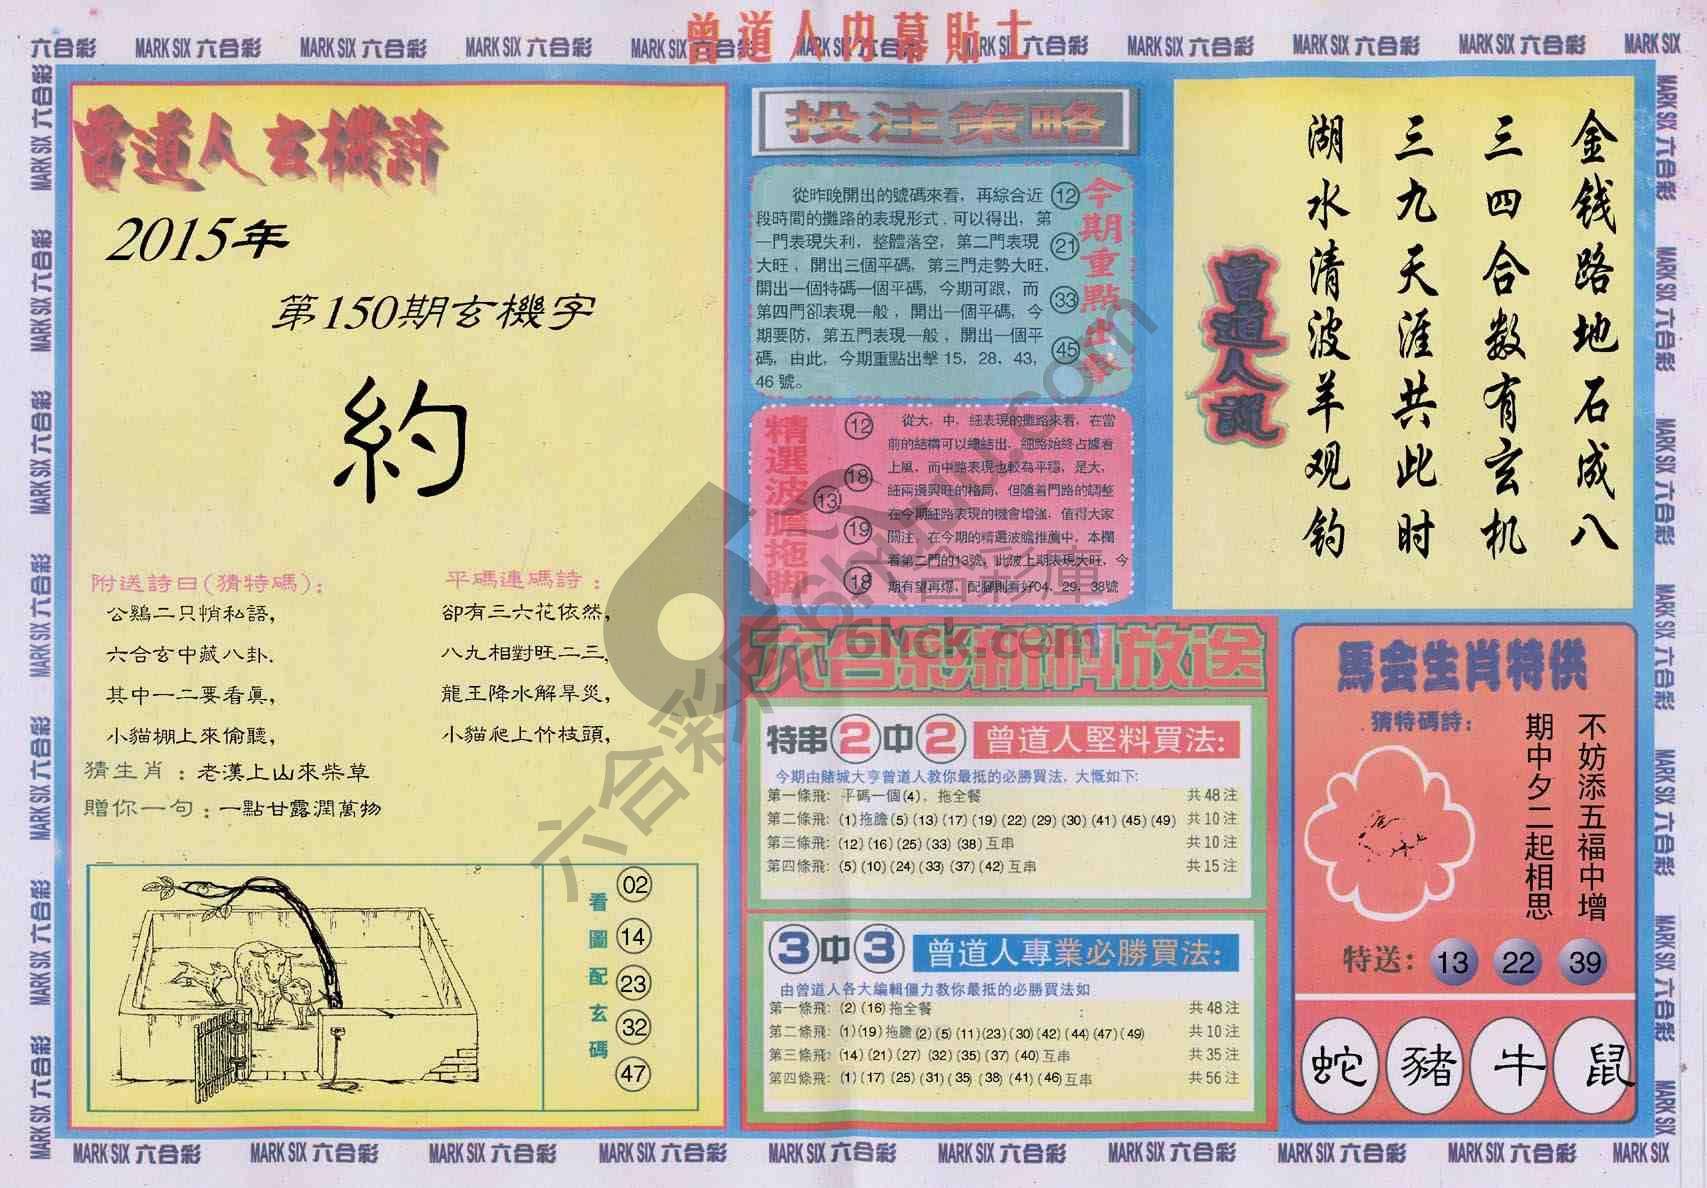 曾道人內幕貼士
六合彩 MARK SIX 六合彩 MARK SIX 六合彩 MARK SIX 六合彩 MARK SIX 六合彩 MARK SIX 六合彩 MARK SIX 六合彩 MARK SIX 六合彩 MARK SIX 六合彩 MARK SIX 六合彩 MARK SIX
曾道人玄機詩
2015年
第150期玄機字
約
附送詩曰(猜特碼):
公鷄二只悄私語,
六合玄中藏八卦.
其中一二要看眞,
小貓棚上來偷聽,
平碼連碼詩:
卻有三六花依然,
八九相對旺二三,
龍王降水解旱災,
小貓爬上竹枝頭,
猜生肖:老漢上山來柴草
贈你一句:一點甘露潤萬物
看圖配玄碼
02
14
23
32
47
投注策略
從昨晚開出的號碼來看，再綜合近
段時間的攤路的表現形式，可以得出，第
一門表現失利，整體落空，第二門表現
大旺，開出三個平碼，第三門走勢大旺，
開出一個特碼一個平碼，今期可跟，而
第四門卻表現一般，開出一個平碼，今
期要防，第五門表現一般，開出一個平
碼，由此，今期重點出擊 15、28、43，
46 號。
12
21
33
45
今期重點出擊
精選波膽拖腳
12
18
13
19
18
從大，中，細表現的攤路來看，在當
前的結構可以總結出，細路始終占據着
上風，而中路表現也較為平穩，是大，
細兩邊興旺的格局，但隨着門路的調整
在今期細路表現的機會增強，值得大家
關注，在今期的精選波膽推薦中，本欄
看第二門的13號，此波上期表現大旺，今
期有望再爆，配腳則看好04、29、38號
曾道人說
金钱路地石成八
三四合数有玄机
三九天涯共此时
湖水清波羊观钓
六合彩新料放送
特串2中2 曾道人堅料買法:
今期由賭城大亨曾道人教你最抵的必勝買法，大慨如下:
第一條飛: 平碼一個(4)，拖全餐 共 48 注
第二條飛: (1)拖膽(5)(13)(17)(19)(22)(29)(30)(41)(45)(49) 共 10 注
第三條飛: (12)(16)(25)(33)(38)互串 共 10 注
第四條飛: (5)(10)(24)(33)(37)(42)互串 共 15 注
3中3 曾道人專業必勝買法:
由曾道人各大編輯僵力教你最抵的必勝買法如
第一條飛: (2)(16)拖全餐 共 48 注
第二條飛: (1)(19)拖膽(2)(5)(11)(23)(30)(42)(44)(47)(49) 共 10 注
第三條飛: (14)(21)(27)(32)(35)(37)(40)互串 共 35 注
第四條飛: (1)(17)(25)(31)(35)(38)(41)(46)互串 共 56 注
馬会生肖特供
猜特碼詩:
不妨添五福中增
期中夕二起相思
特送: 13 22 39
蛇 豬 牛 鼠
6hck.com
MARK SIX 六合彩 MARK SIX 六合彩 MARK SIX 六合彩 MARK SIX 六合彩 MARK SIX 六合彩 MARK SIX 六合彩 MARK SIX 六合彩 MARK SIX 六合彩 MARK SIX 六合彩 MARK SIX